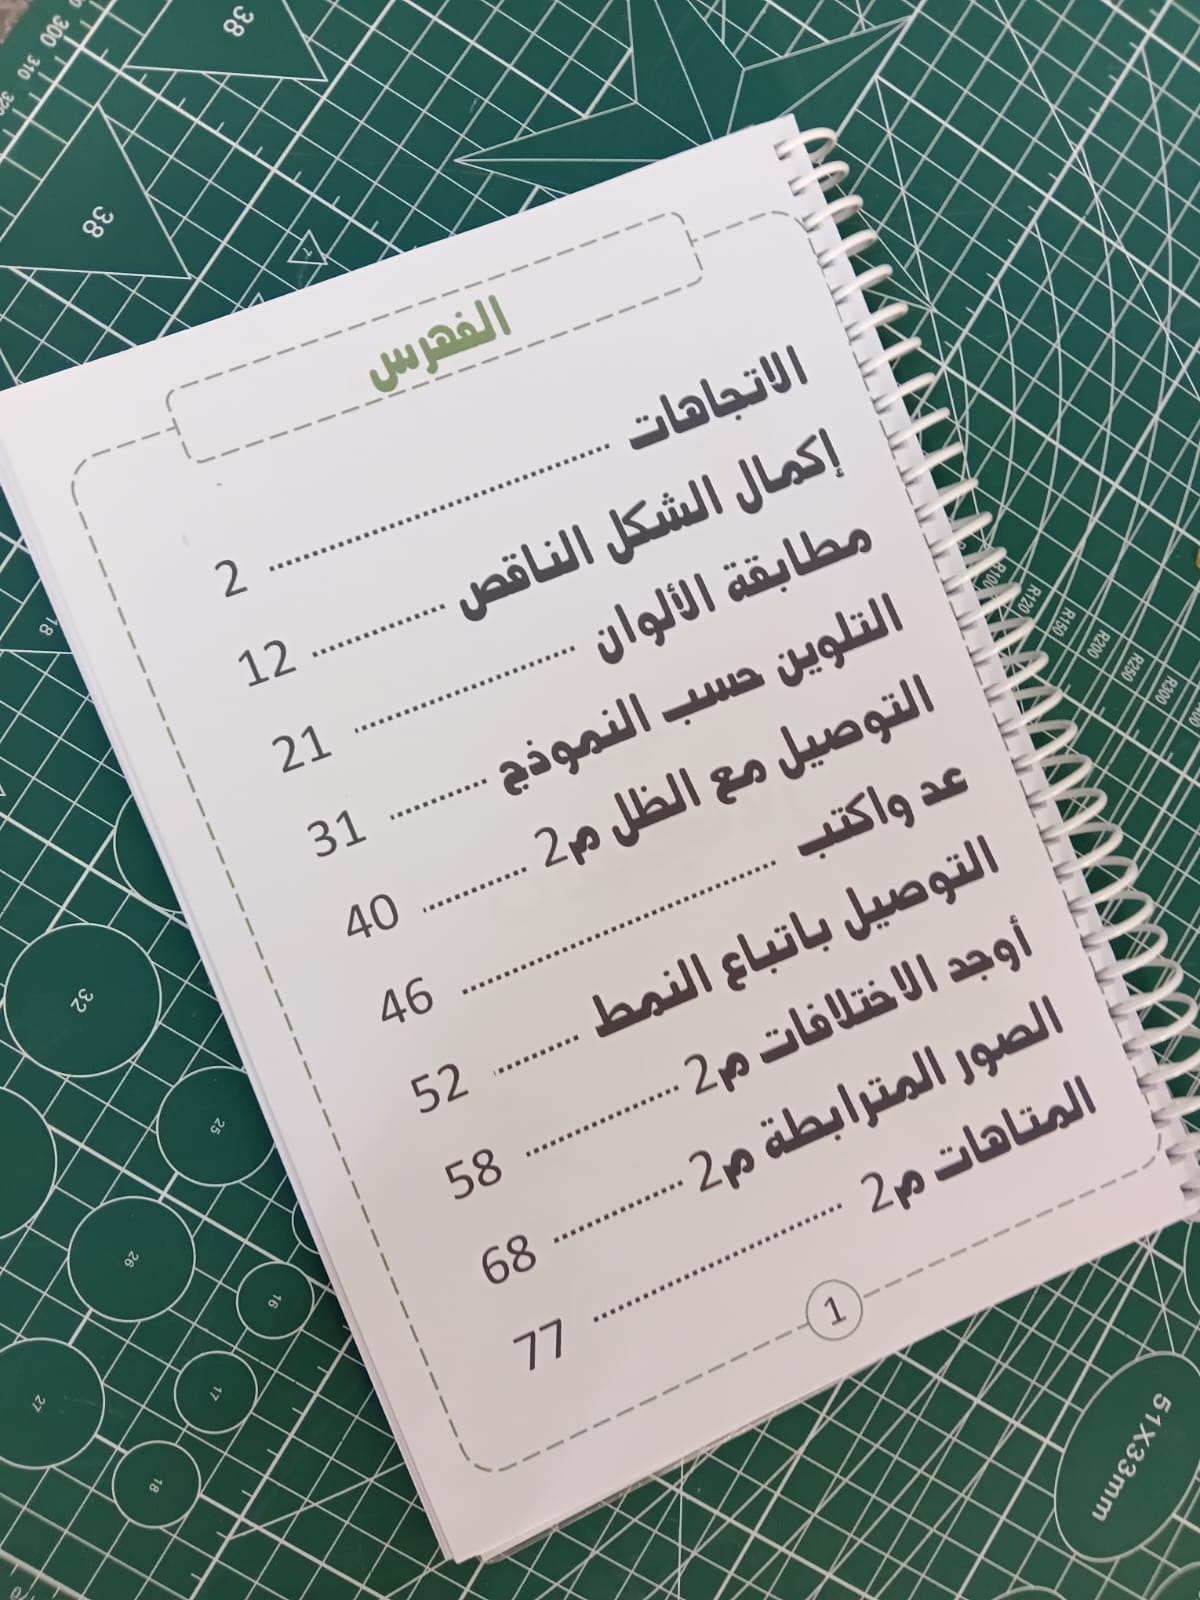 الفهرس
الاتجاهات .......................... 2
إكمال الشكل الناقص ............ 12
مطابقة الألوان .................... 21
التلوين حسب النموذج ......... 31
التوصيل مع الظل م2 .......... 40
عد واكتب ............................ 46
التوصيل باتباع النمط ........ 52
أوجد الاختلافات م2 ............. 58
الصور المترابطة م2 ............ 68
المتاهات م2 ...................... 77
1
38
300
310
320
38
18
32
25
26
16
27
17
18
R100
R120
R150
R200
R250
R300
51X33mm